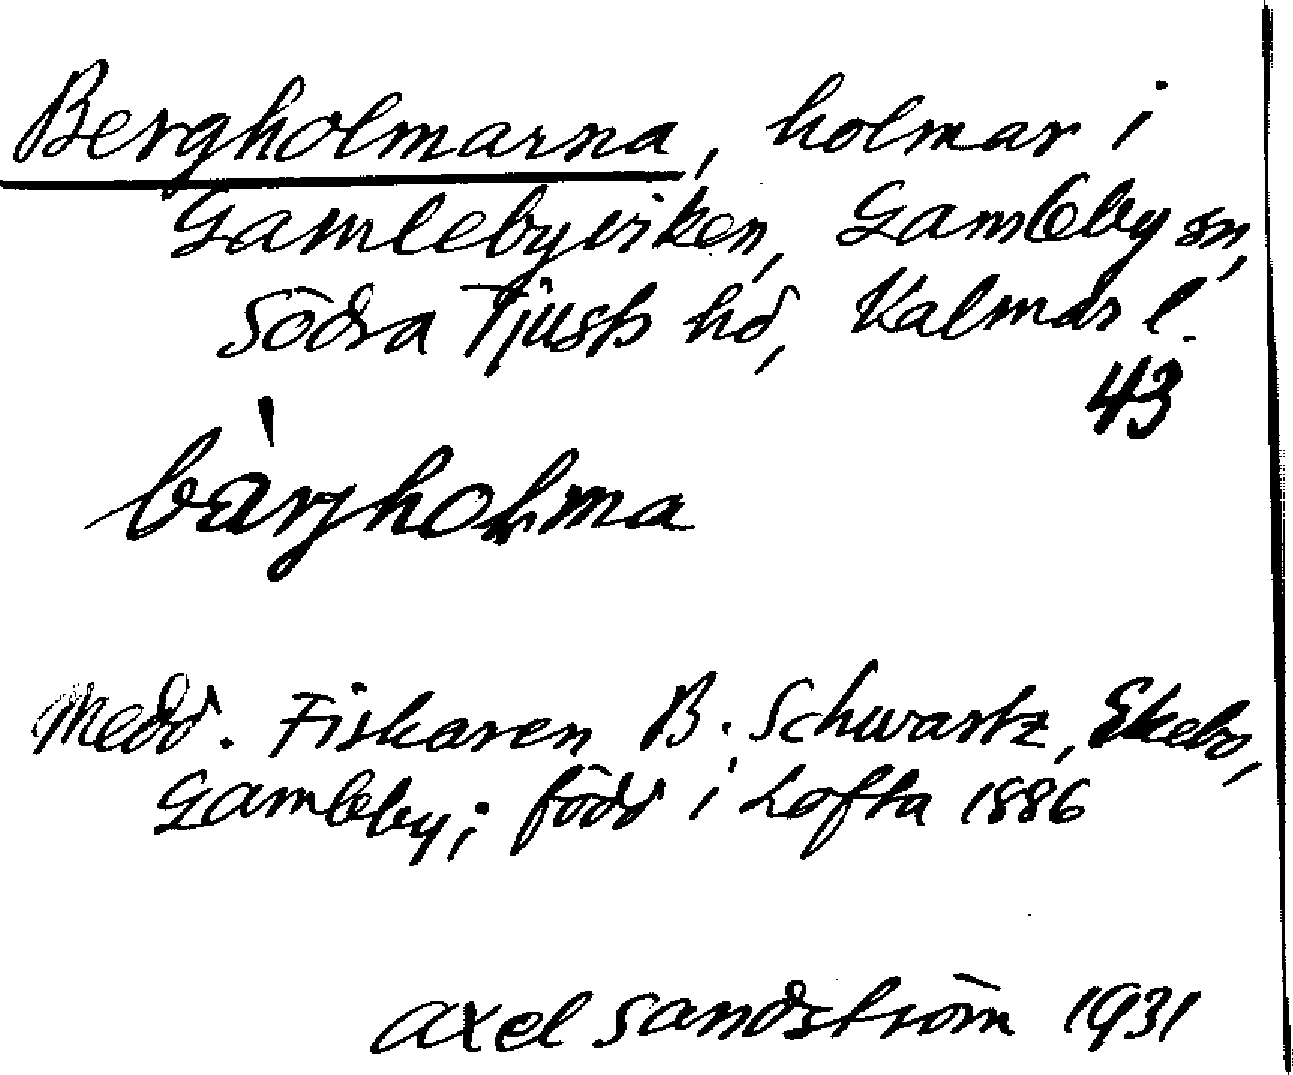 Bergholmarna, holmar i
Gamlebyviken, Gamleby sn,
Södra Tjusts hd, Kalmar l.
43
bàrjholma
Medd. Fiskaren B. Schwartz, Ekebo,
Gamleby; född i Lofta 1886
Axel Sandström 1931